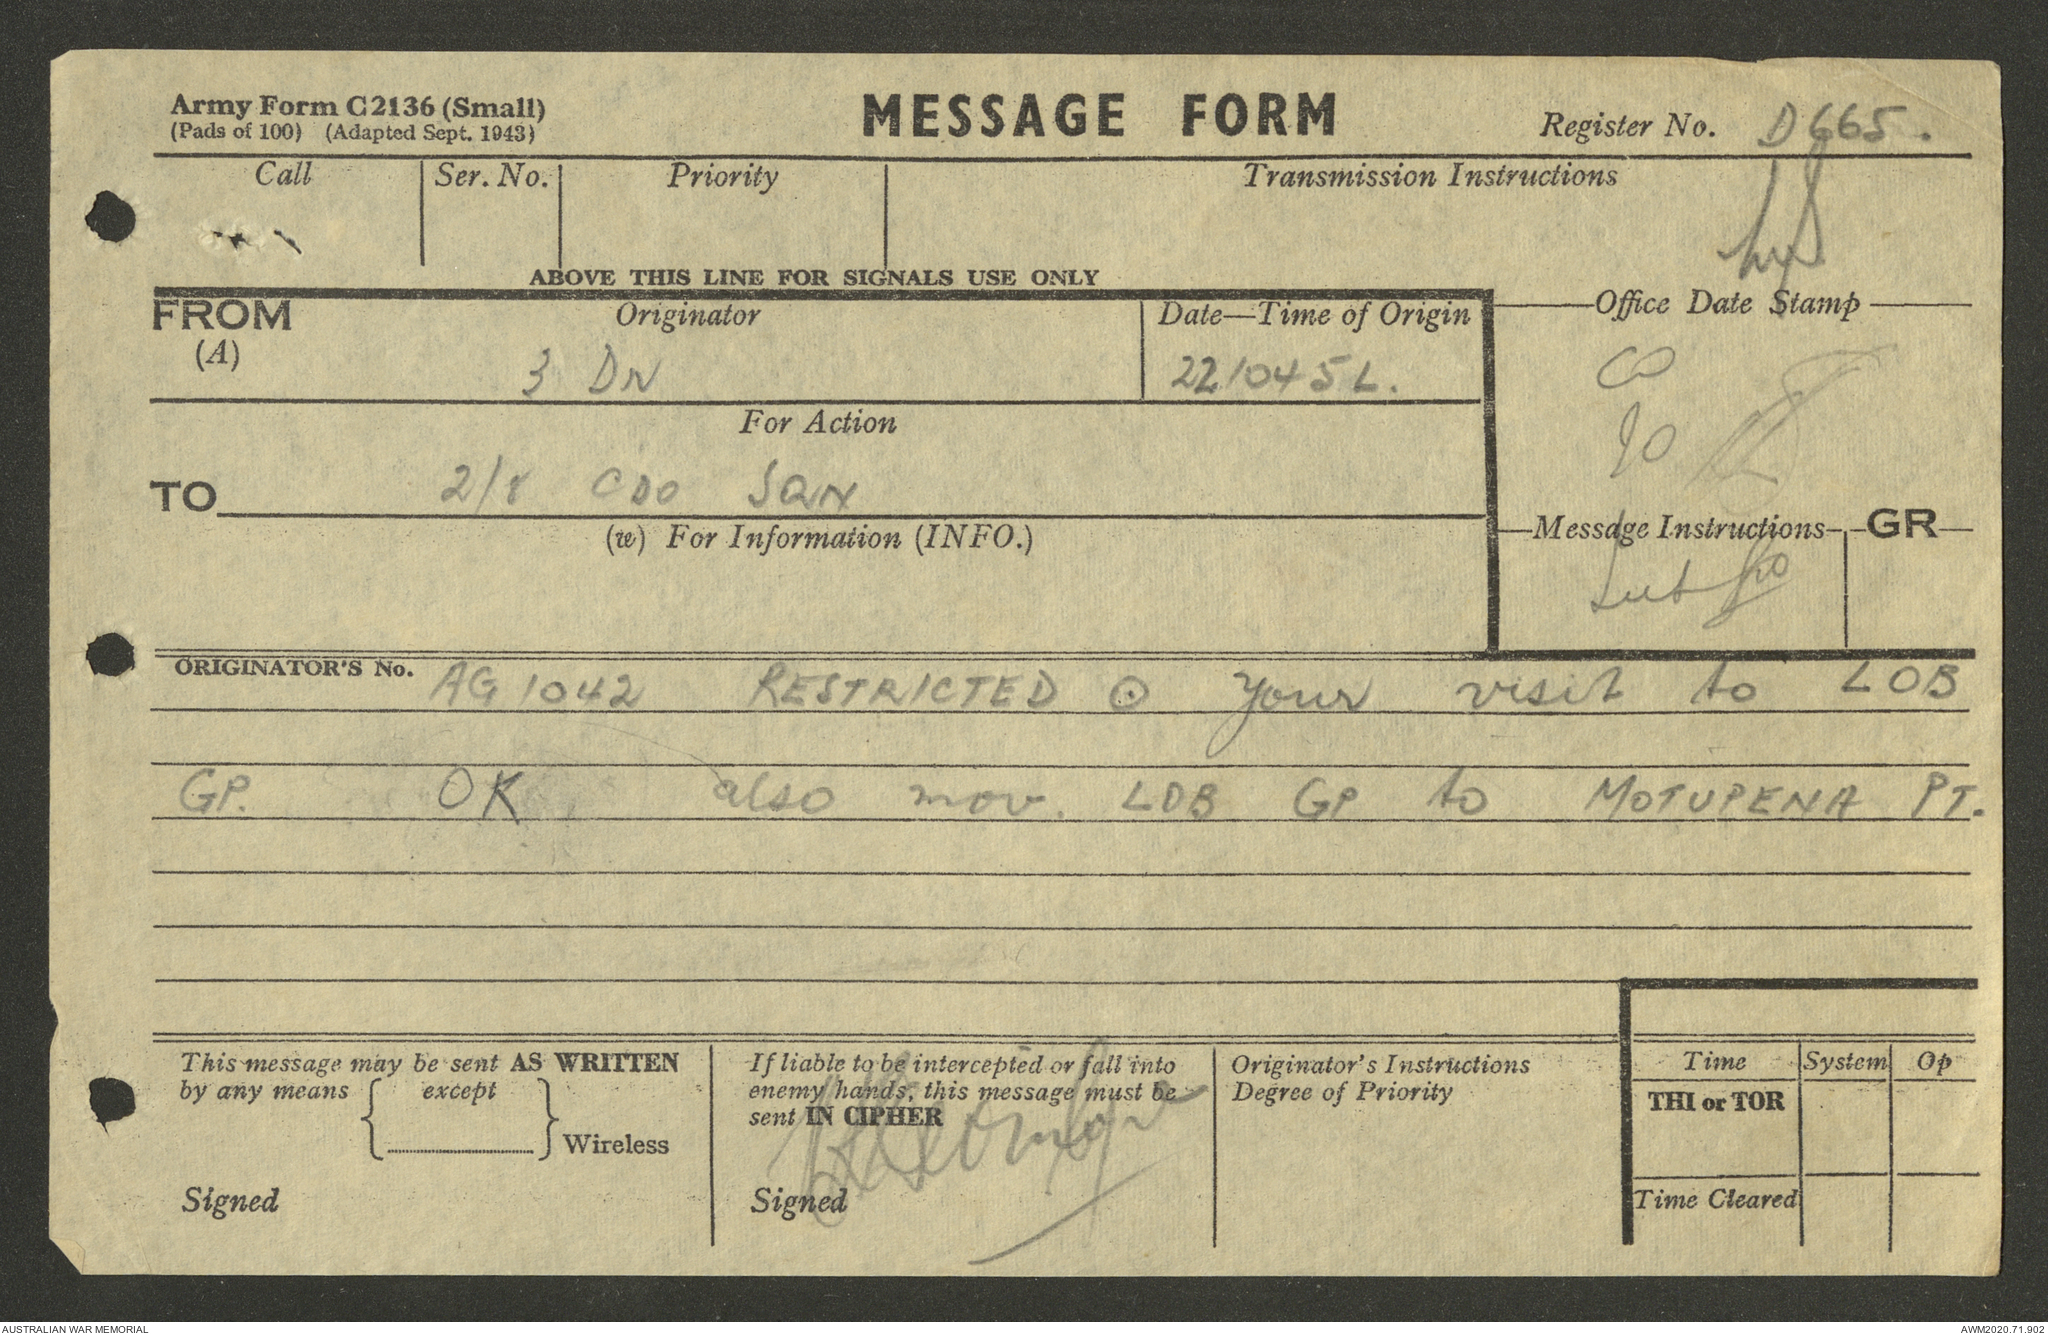 Army Form C2136 (Small)
(Pads of 100) (Adapted Sept. 1943)
MESSAGE FORM
Register No. D665.
Call
Ser. No.
Priority
Transmission Instructions
ABOVE THIS LINE FOR SIGNALS USE ONLY
FROM
(A)
Originator
Date—Time of Origin
Office Date Stamp
3 DIV
221045L.
CO
For Action
TO
2/8 CDO SQN
(w) For Information (INFO.)
Message Instructions
GR
ORIGINATOR'S No. AG 1042 RESTRICTED ⊙ Your visit to LOB
GP. OK also mov. LOB GP to MOTUPENA PT.
This message may be sent AS WRITTEN
by any means { except
} Wireless
Signed
If liable to be intercepted or fall into
enemy hands, this message must be
sent IN CIPHER
Signed
Originator's Instructions
Degree of Priority
Time
System
Op
THI or TOR
Time Cleared
AUSTRALIAN WAR MEMORIAL
AWM2020.71.902